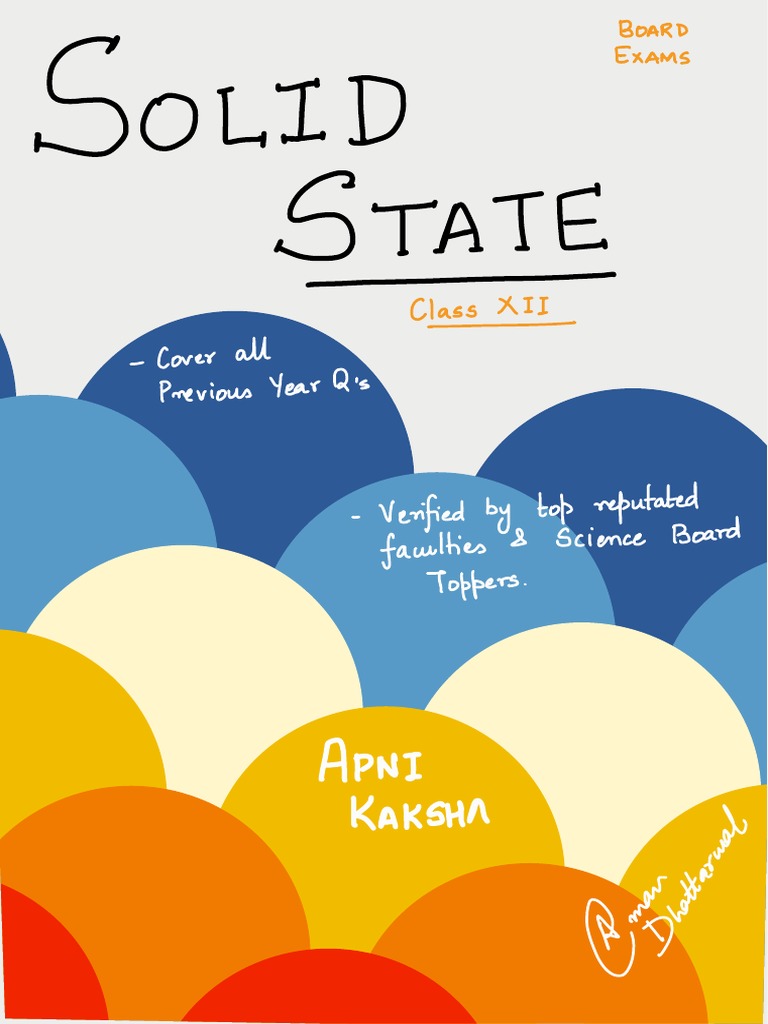 BOARD
EXAMS
SOLID
STATE
Class XII
- Cover all
Previous Year Q's
- Verified by top reputated
faculties & Science Board
Toppers.
APNI
KAKSHA
Aman
Dhattarwal